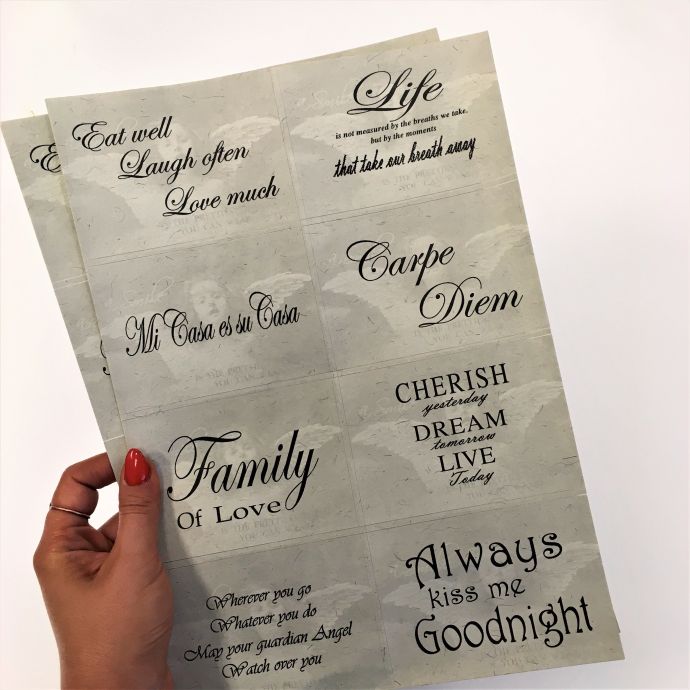 Eat well
Laugh often
Love much
Life
is not measured by the breaths we take,
but by the moments
that take our breath away
Mi Casa es su Casa
Carpe
Diem
Family
Of Love
CHERISH
yesterday
DREAM
tomorrow
LIVE
Today
Wherever you go
Whatever you do
May your guardian Angel
Watch over you
Always
kiss me
Goodnight